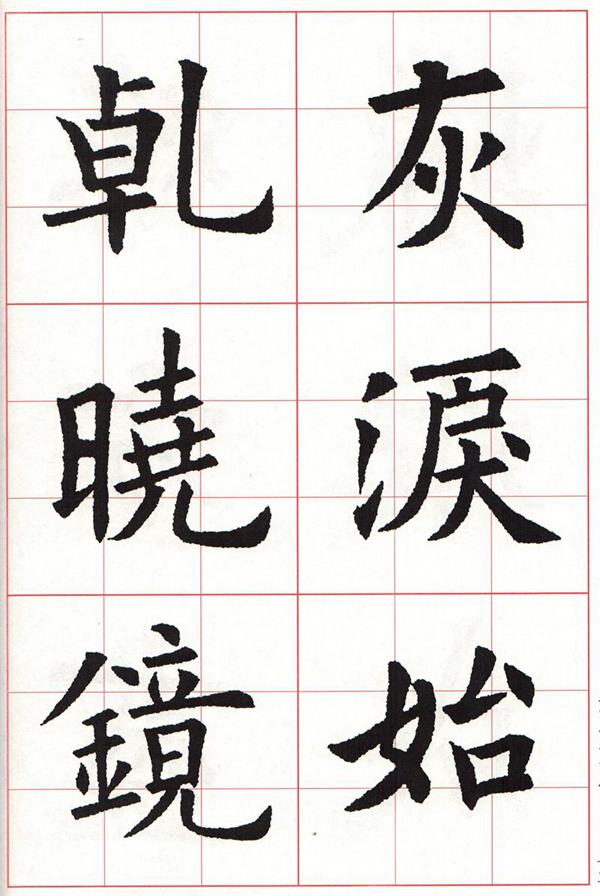 灰淚始
乹曉鏡